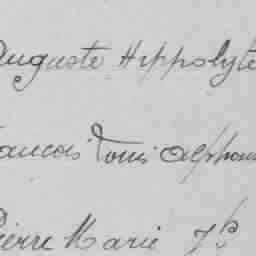 Auguste Hippolyte
Francois Louis Alphons
Pierre Marie Jh